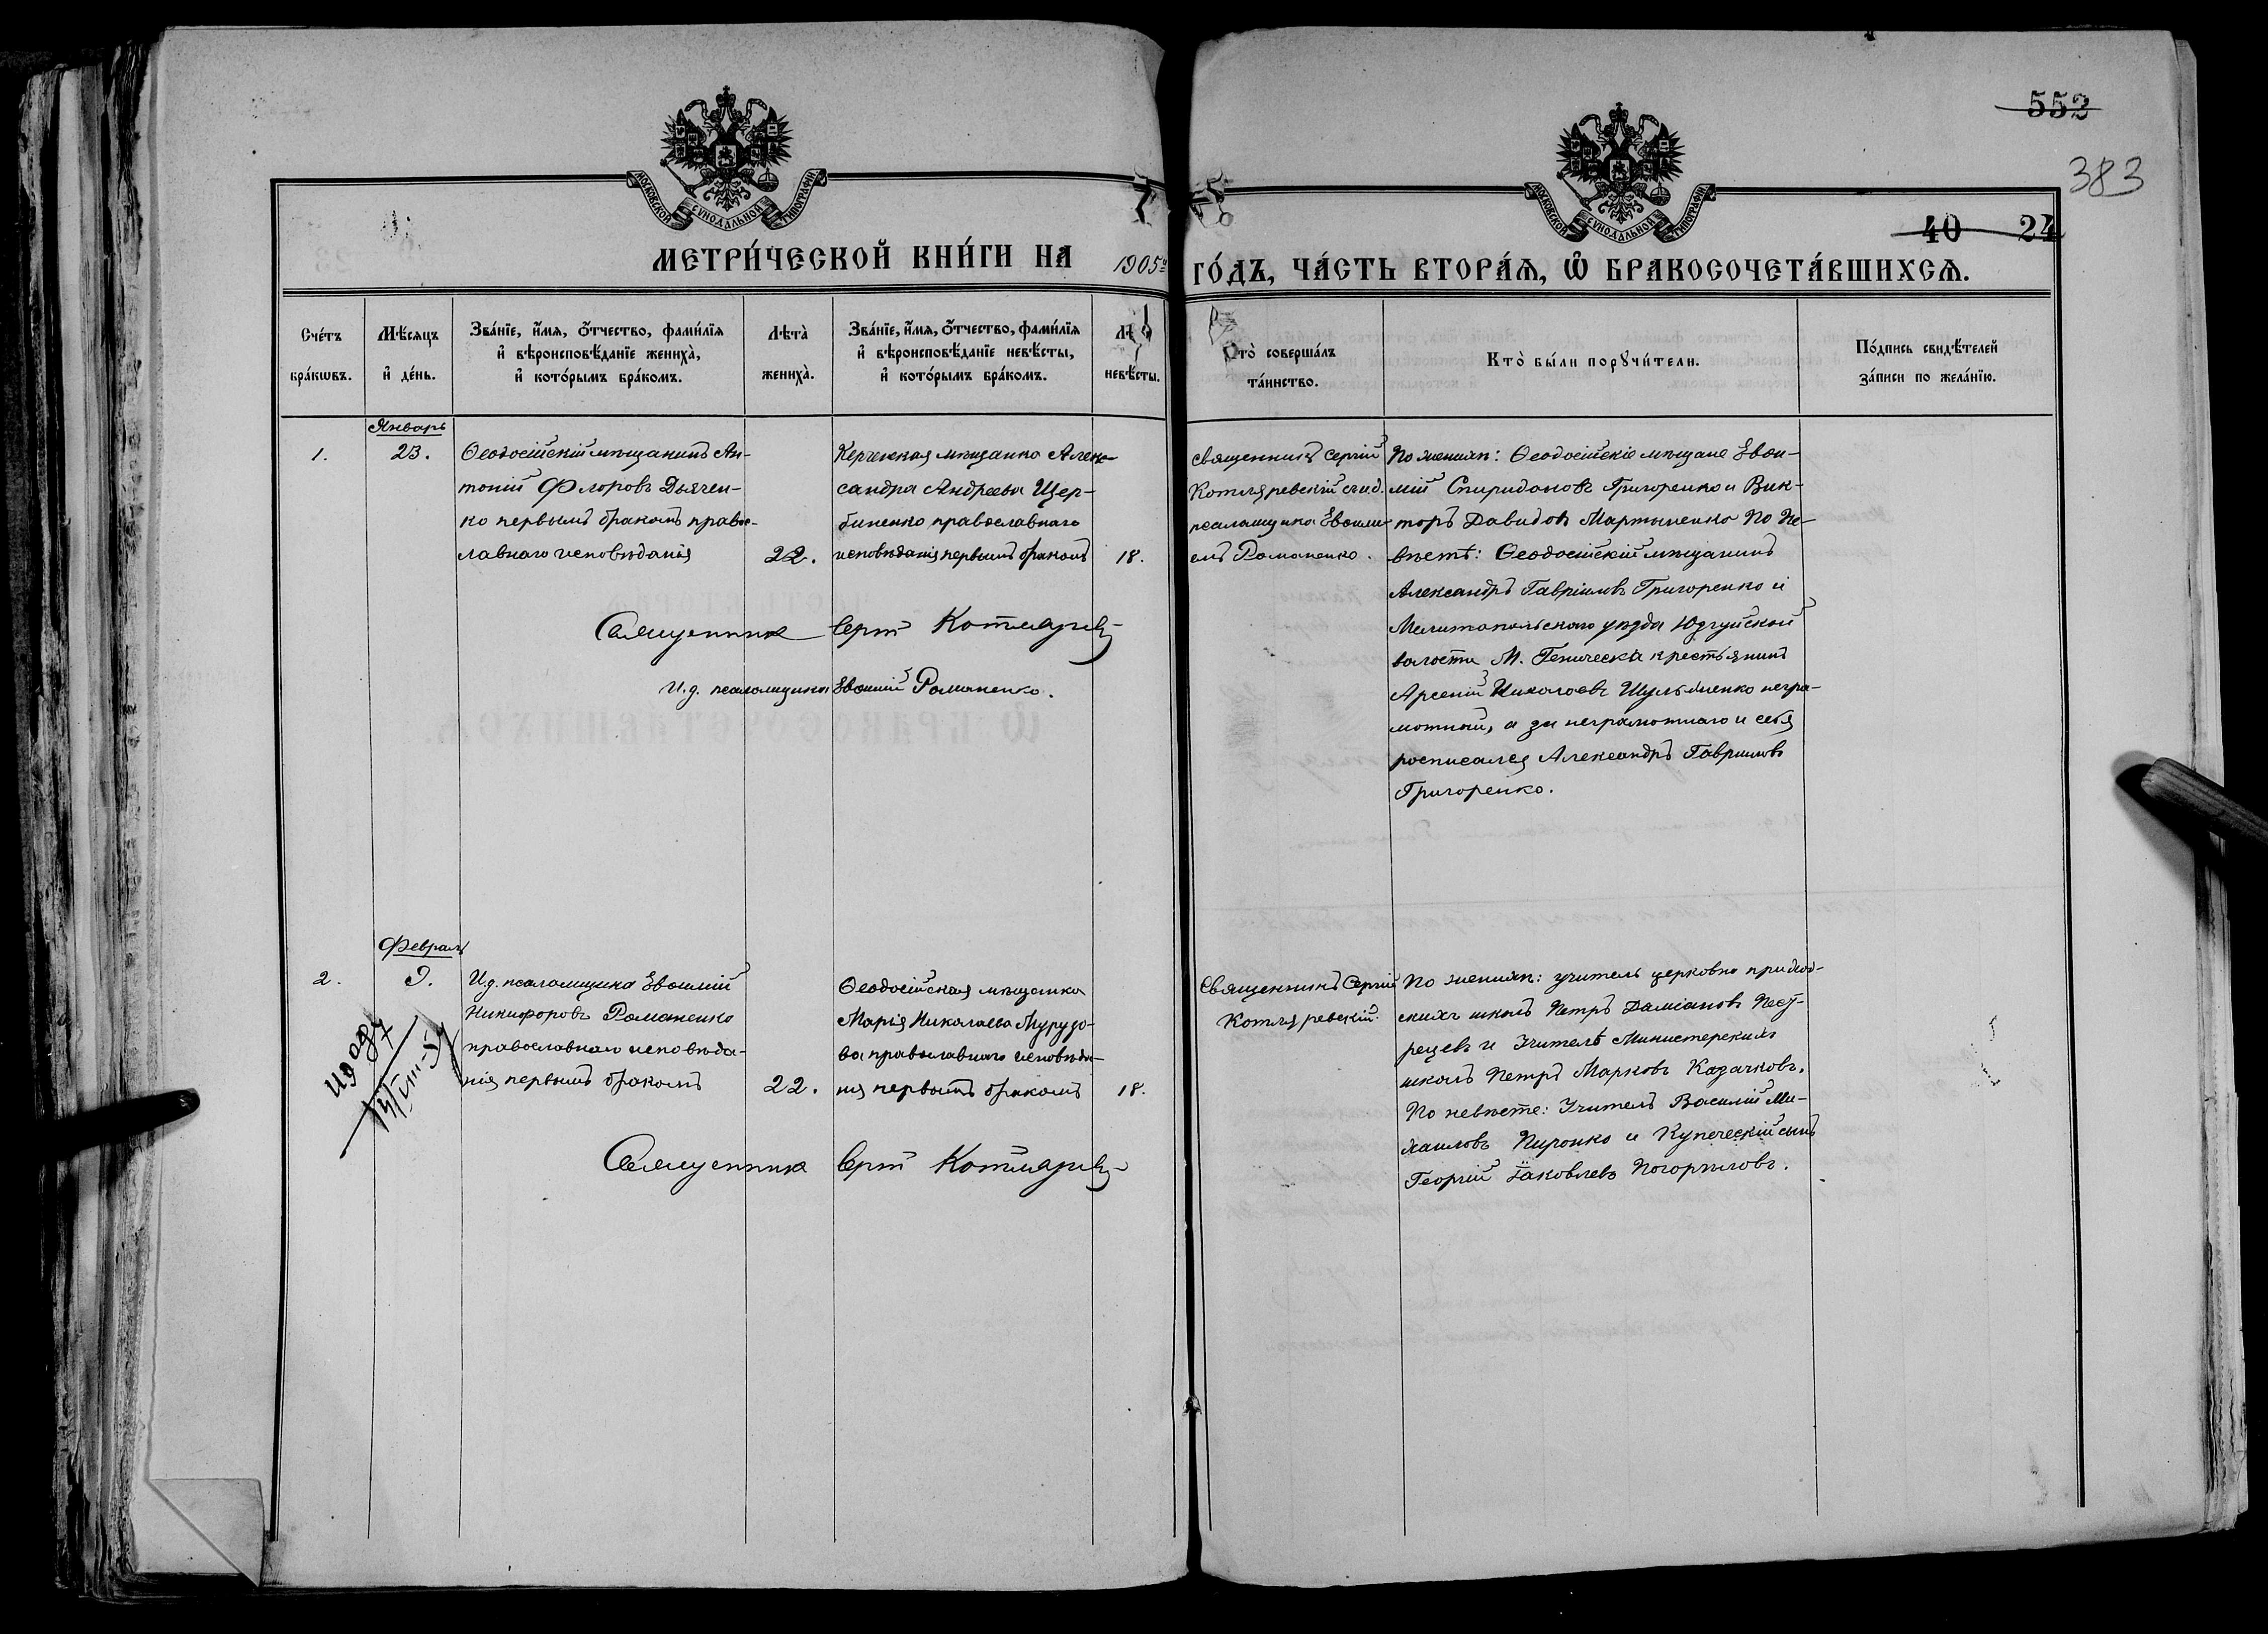 552
383
МОСКОВСКОЙ СѴНОДАЛЬНОЙ ТИПОГРАФІИ
МОСКОВСКОЙ СѴНОДАЛЬНОЙ ТИПОГРАФІИ
40 24
МЕТРИ́ЧЕСКОЙ КНИ́ГИ НА 1905й ГО́ДЪ, ЧА́СТЬ ВТОРА́Ѧ, Ѽ БРАКОСОЧЕТА́ВШИХСѦ.
Сче́тъ
бра́кѡвъ.
Мѣ́сяцъ
и҆ де́нь.
Зва́нїе, и҆́мѧ, ѻ҆́тчество, фами́лїѧ
и҆ вѣроисповѣ́данїе жениха̀,
и҆ кото́рымъ бра́комъ.
Лѣта̀
жениха̀.
Зва́нїе, и҆́мѧ, ѻ҆́тчество, фами́лїѧ
и҆ вѣроисповѣ́данїе невѣ́сты,
и҆ кото́рымъ бра́комъ.
невѣ́сты.
Кто̀ соверша́лъ
та́инство.
Кто̀ бы́ли порꙋчи́тели.
По́дпись свидѣ́телей
за́писи по жела́нїю.
Январь
1.
23.
Ѳеодосійскій мѣщанинъ Ан-
тоній Флоровъ Дьячен-
ко первымъ бракомъ правос-
лавнаго исповѣданія
22.
Керченская мѣщанка Алек-
сандра Андреева Щер-
биненко православнаго
исповѣданія первымъ бракомъ
18.
Священникъ Сергій
Котляревскій съ и.д.
псаломщика Евѳимі-
емъ Романенко.
По женихѣ: Ѳеодосійскіе мѣщане Евѳи-
мій Спиридоновъ Григоренко и Вик-
торъ Давидовъ Мартыненко По не-
вѣстѣ: Ѳеодосійскій мѣщанинъ
Александръ Гавріиловъ Григоренко и
Мелитопольскаго уѣзда Юзгуйской
волости М. Геническа крестьянинъ
Арсеній Николаевъ Шульженко негра-
мотный, а за неграмотнаго и себя
росписался Александръ Гавриловъ
Григоренко.
Священникъ Сергій Котляревскій
И.д. псаломщика Евѳимій Романенко.
Февраль
2.
9.
И.д. псаломщика Евѳимій
Никифоровъ Романенко
православнаго исповѣда-
нія первымъ бракомъ
22.
Ѳеодосійская мѣщанка
Марія Николаева Мурузо-
ва православнаго исповѣда-
нія первымъ бракомъ
18.
Священникъ Сергій
Котляревскій.
По женихѣ: учитель церковно приход-
скихъ школъ Петръ Даміановъ Песту-
рецевъ и Учитель Министерскихъ
школъ Петръ Марковъ Казачковъ.
По невѣсте: Учитель Василій Ми-
хаиловъ Пиронко и Купеческій сынъ
Георгій Іаковлевъ Погорѣловъ.
Священникъ Сергій Котляревскій